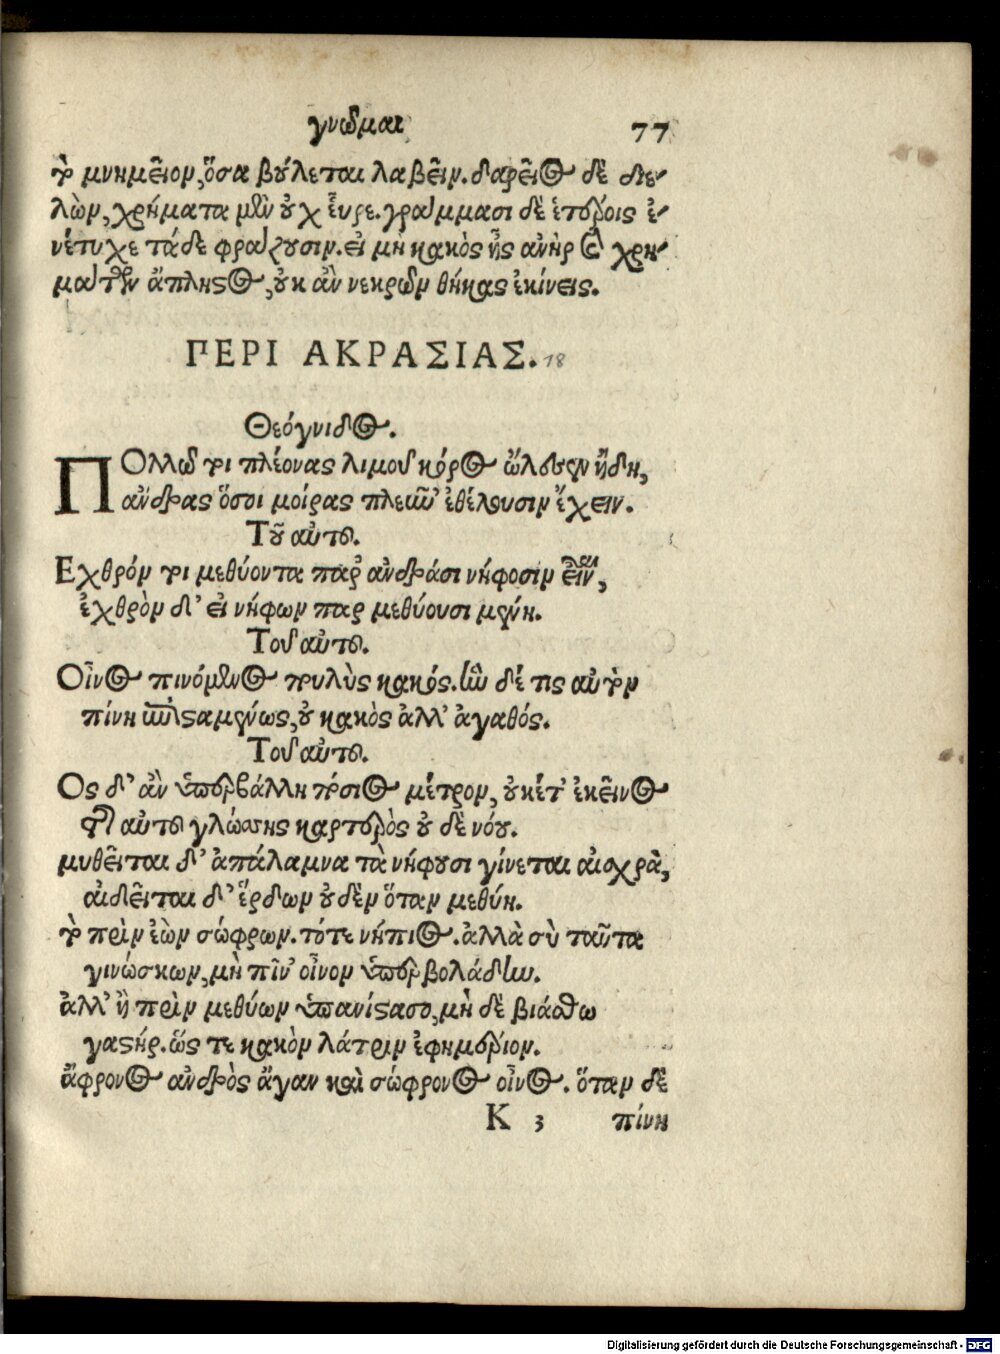 γνῶμαι 77
τὸ μνημεῖον, ὅσα βούλεται λαβεῖν. δαρεῖος δὲ διε-
λὼν, χρήματα μὲν οὐχ εὗρε. γράμμασι δὲ ἑτέροις ἐ-
νέτυχε τάδε φράζουσιν. εἰ μὴ κακὸς ἦς ἀνὴρ καὶ χρη-
μάτων ἄπληστος, οὐκ ἂν νεκρῶν θήκας ἐκίνεις.
ΠΕΡΙ ΑΚΡΑΣΙΑΣ. 18
Θεόγνιδος.
ΠΟλλῶ τοι πλέονας λιμοῦ κόρος ὤλεσεν ἤδη,
ἄνδρας ὅσοι μοίρας πλεῖον ἐθέλουσιν ἔχειν.
Τοῦ αὐτοῦ.
Εχθρόν τοι μεθύοντα παρ' ἀνδράσι νήφοσιν εἶναι,
ἐχθρὸν δ' εἰ νήφων παρ μεθύουσι μένη.
Τοῦ αὐτοῦ.
Οἶνος πινόμενος πουλὺς κακός. ἢν δέ τις αὐτὸν
πίνη ἐπισταμένως, οὐ κακὸς ἀλλ' ἀγαθός.
Τοῦ αὐτοῦ.
Ος δ' ἂν ὑπερβάλλη πόσιος μέτρον, οὐκέτ' ἐκεῖνος
τῆς αὐτοῦ γλώσσης καρτερὸς οὐδὲ νόου.
μυθεῖται δ' ἀπάλαμνα τὰ νήφουσι γίνεται αἰσχρὰ,
αἰδεῖται δ' ἕρδων οὐδὲν ὅταν μεθύη.
τὸ πρὶν ἐὼν σώφρων. τότε νήπιος. ἀλλὰ σὺ ταῦτα
γινώσκων, μὴ πῖν' οἶνον ὑπερβολάδην.
ἀλλ' ἢ πρὶν μεθύων ὑπανίστασο, μὴ δὲ βιάσθω
γαστήρ. ὥς τε κακὸν λάτριν ἐφημέριον.
ἄφρονος ἀνδρὸς ἄγαν καὶ σώφρονος οἶνος. ὅταν δὲ
K 3 πίνη
Digitalisierung gefördert durch die Deutsche Forschungsgemeinschaft - DFG